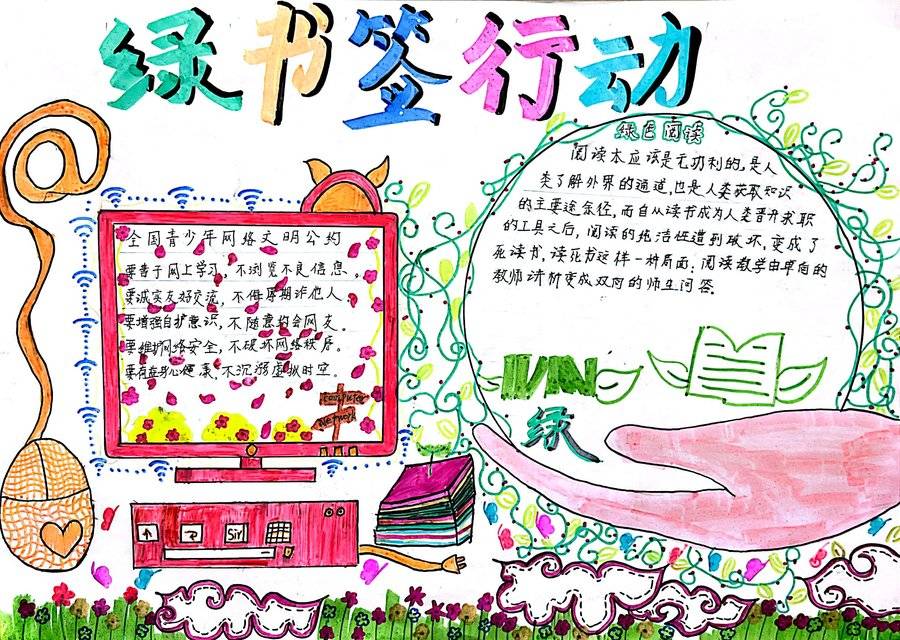 绿书签行动
全国青少年网络文明公约
要善于网上学习，不浏览不良信息。
要诚实友好交流，不侮辱欺诈他人。
要增强自护意识，不随意约会网友。
要维护网络安全，不破坏网络秩序。
要有益身心健康，不沉溺虚拟时空。
Computer
Network
Sirl
绿色阅读
阅读本应该是无功利的，是人
类了解外界的通道，也是人类获取知识
的主要途径，而自从读书成为人类晋升求职
的工具之后，阅读的纯洁性遭到破坏，变成了
死读书，读死书这样一种局面；阅读教学由单向的
教师讲析变成双向的师生问答
绿